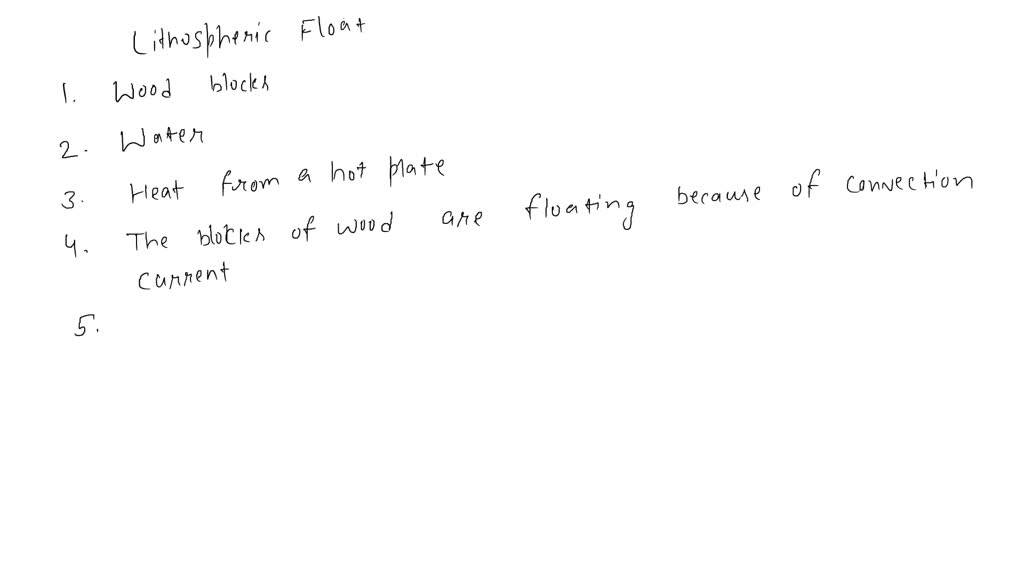 Lithospheric Float
1. Wood blocks
2. Water
3. Heat from a hot plate
4. The blocks of wood are floating because of convection
current
5.